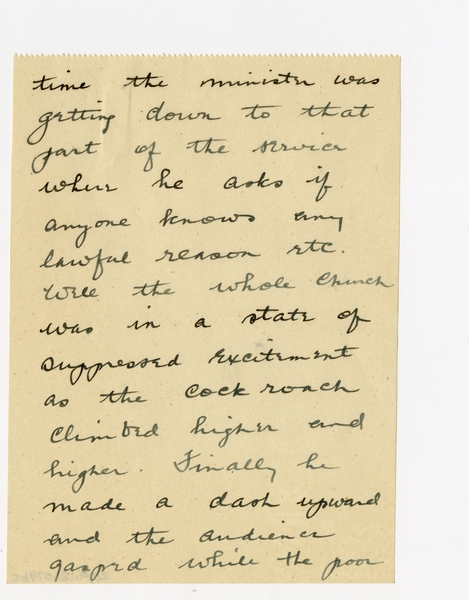 time the minister was
getting down to that
part of the service
where he asks if
anyone knows any
lawful reason etc.
Well the whole church
was in a state of
suppressed excitement
as the cock roach
climbed higher and
higher. Finally he
made a dash upward
and the audience
gasped while the poor